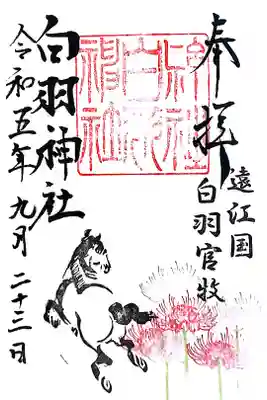 奉拝
遠江国
白羽官牧
白羽神社
令和五年九月二十三日